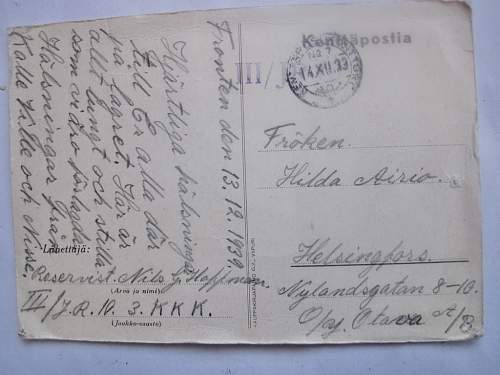 Fronten den 13.12.1939.
Hjärtliga hälsningar
till Er alla där
på lagret, Här är
allt lungt och stilla
som vi äro förlagda
Hälsningar från
Kalle Ville och Nisse.
Lähettäjä:
Reservist. Nils G. Hoffman
(Arvo ja nimi)
III/J.R.10. 3. K.K.K.
(Joukko-osasto)
Kenttäpostia
III/J
14 XII 39
Fröken.
Hilda Airio.
Helsingfors.
Nylandsgatan 8-10.
O/y. Otava A/B